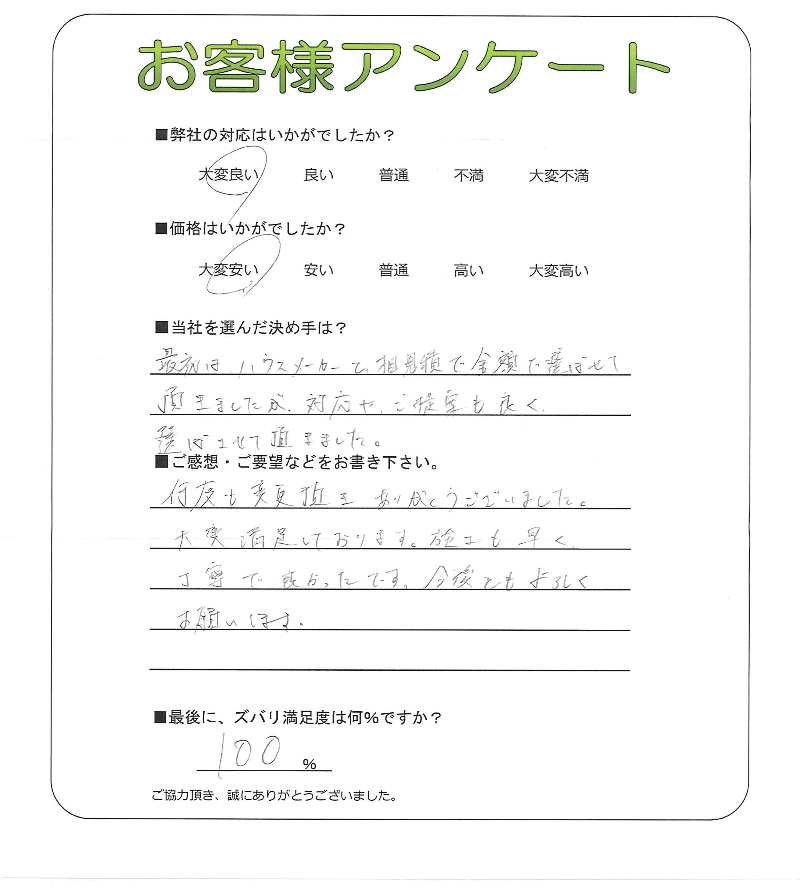 お客様アンケート
■弊社の対応はいかがでしたか？
大変良い 良い 普通 不満 大変不満
■価格はいかがでしたか？
大変安い 安い 普通 高い 大変高い
■当社を選んだ決め手は？
最初は、ハウスメーカーと、相見積で金額で選ばせて
頂きましたが、対応や、ご提案も良く、
選ばせて頂きました。
■ご感想・ご要望などをお書き下さい。
何度も変更頂き ありがとうございました。
大変満足しております。施工も早く、
丁寧で良かったです。今後ともよろしく
お願いします。
■最後に、ズバリ満足度は何％ですか？
100 ％
ご協力頂き、誠にありがとうございました。